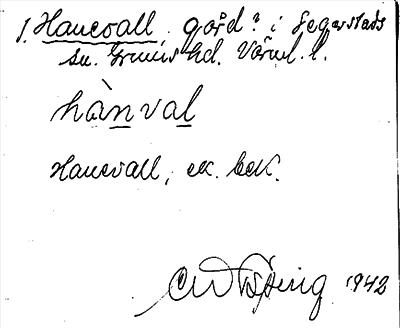 1. Hanevall, gård? i Segerstads
sn. Grums hd. Värml. l.
hànval
Hanevall, ek. bck.
1942